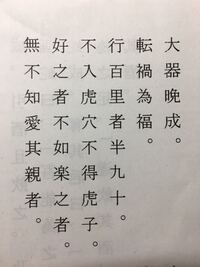 大器晩成。
転禍為福。
行百里者半九十。
不入虎穴不得虎子。
好之者不如楽之者。
無不知愛其親者。